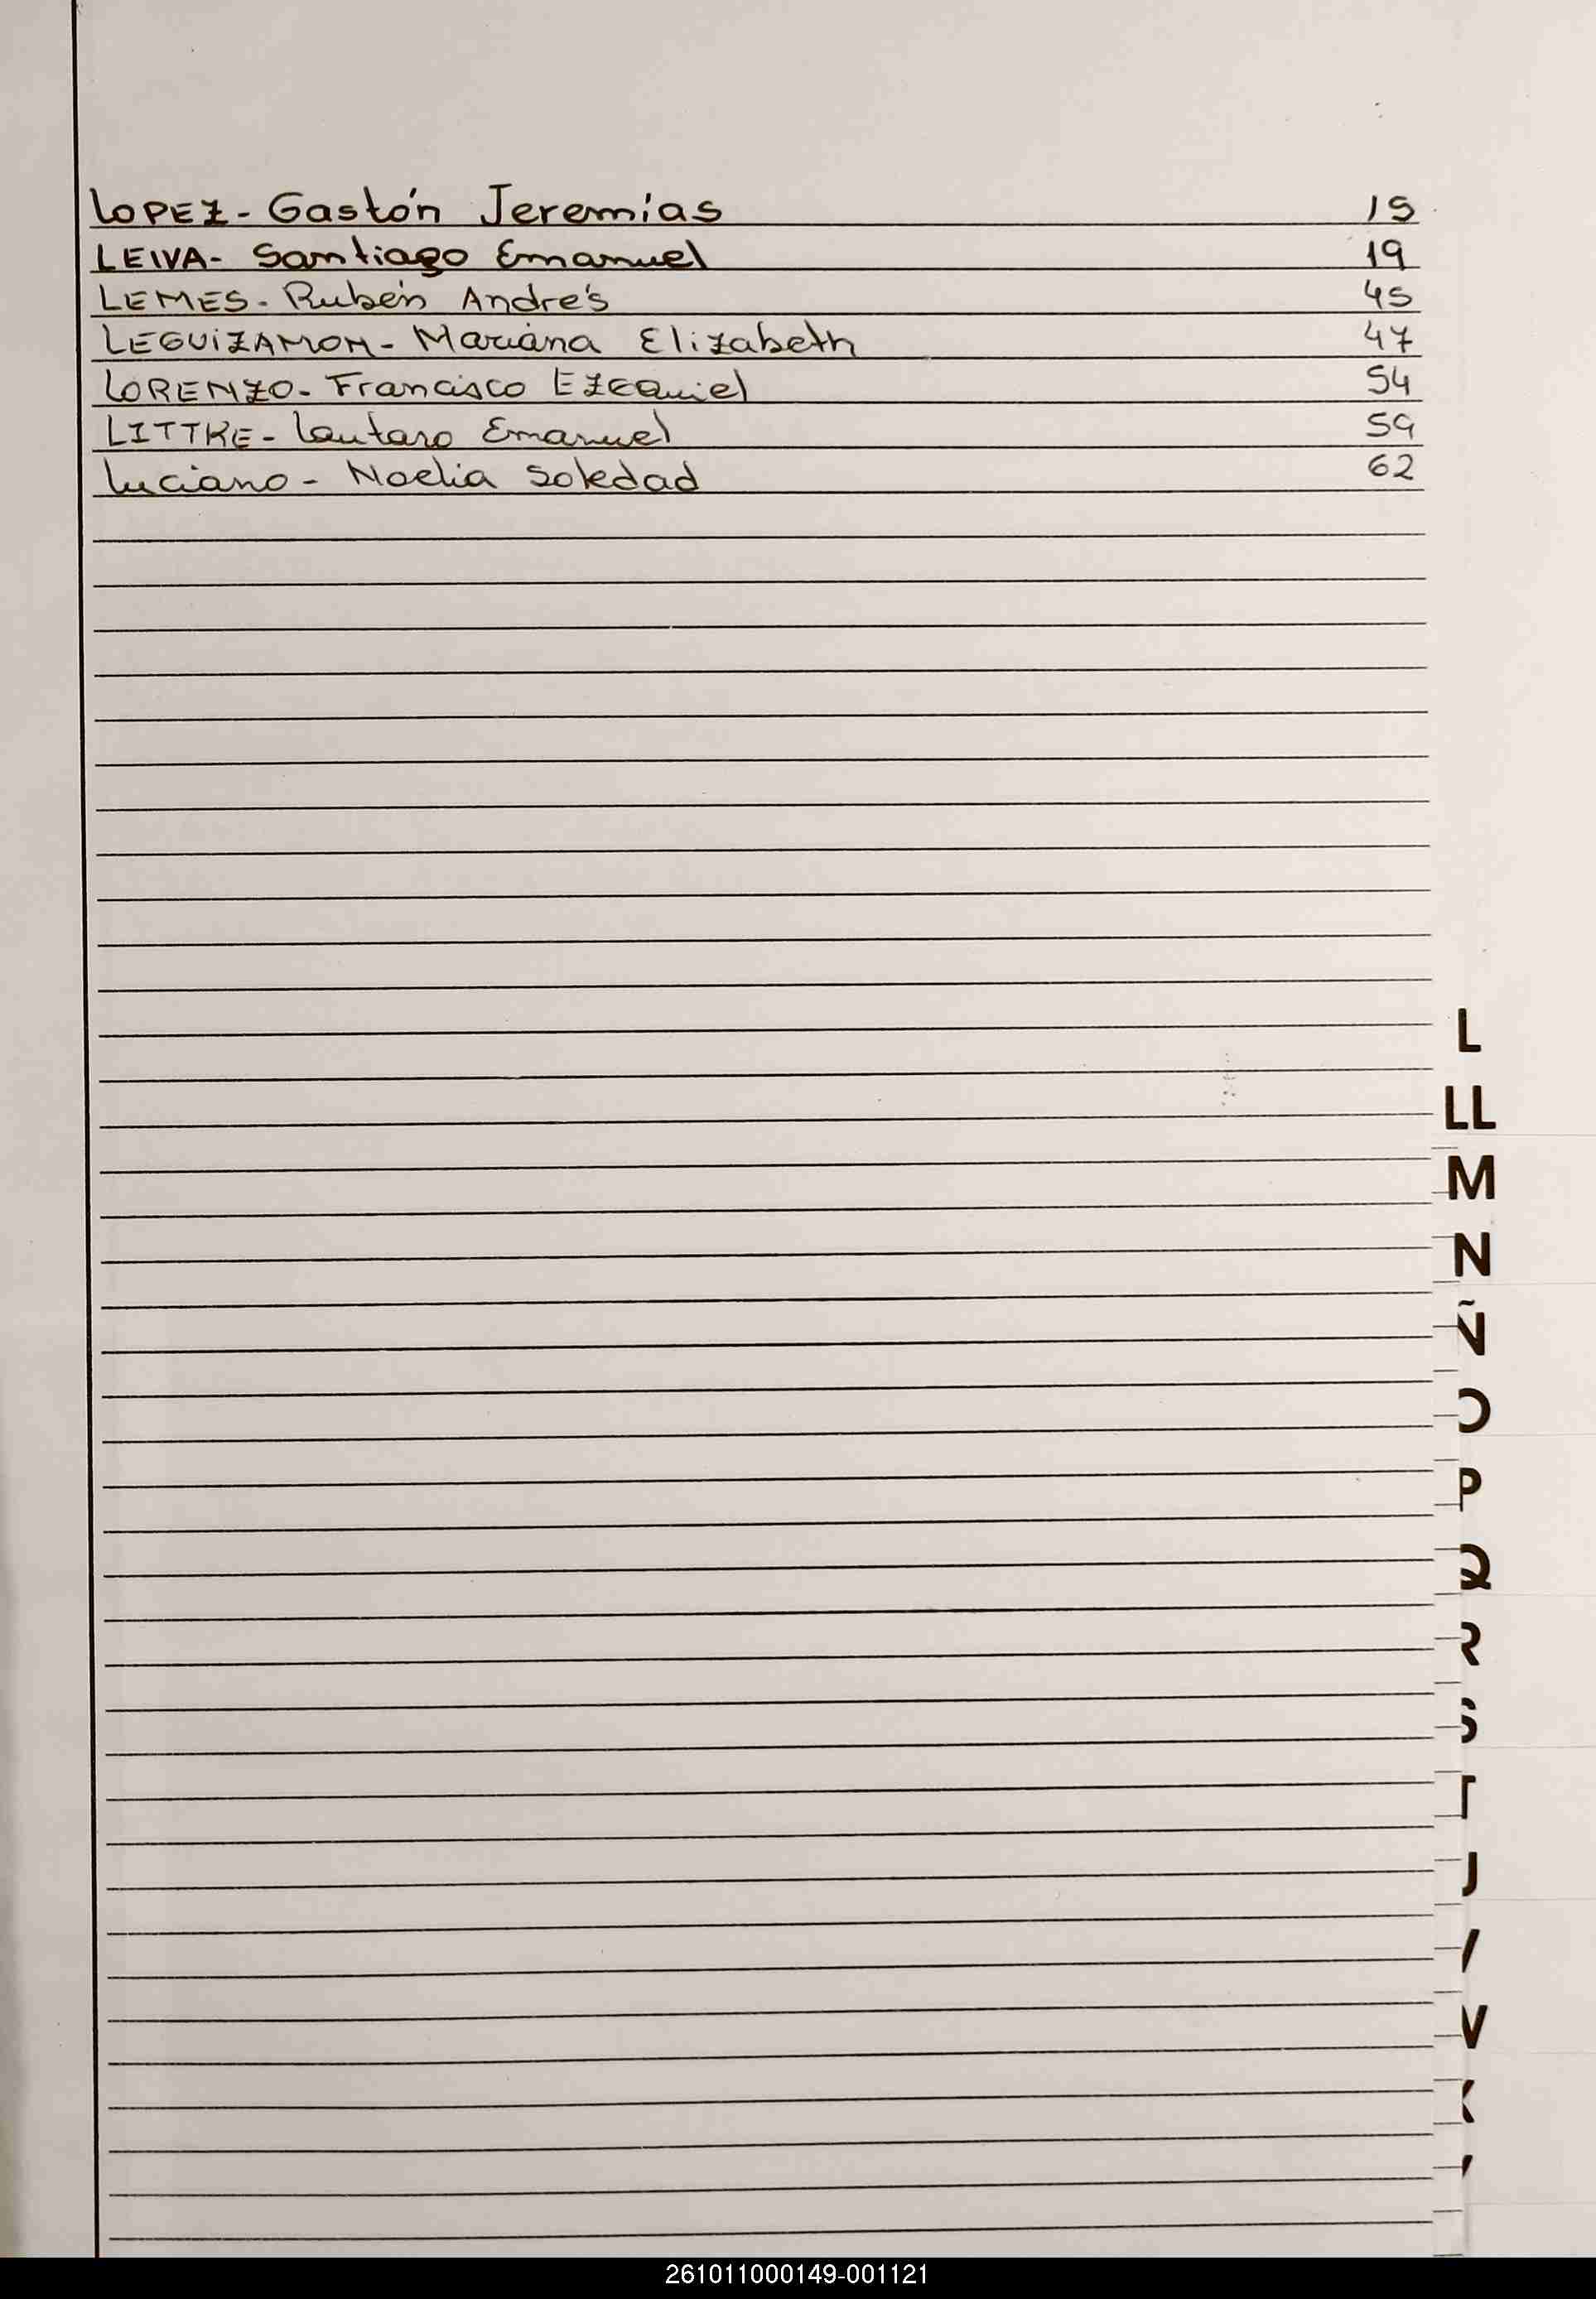 LOPEZ - Gastón Jeremías 15
LEIVA - Santiago Emanuel 19
LEMES - Rubén Andrés 45
LEGUIZAMON - Mariana Elizabeth 47
LORENZO - Francisco EZEQuiel 54
LITTKE - Lautaro Emanuel 59
Luciano - Noelia Soledad 62
L
LL
M
N
Ñ
O
P
Q
R
S
T
U
V
W
X
Y
261011000149-001121